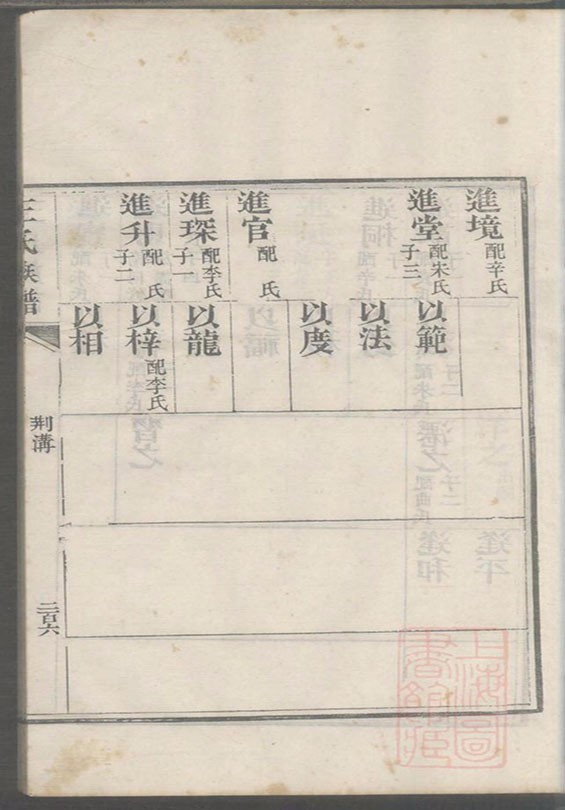 進境 配辛氏
進堂 配朱氏 子三
以範
以法
以度
進官 配 氏
進琛 配李氏 子一
以龍
進升 配 氏 子二
以梓 配李氏
以相
王氏族譜
荆溝
二百六
上海圖書館藏